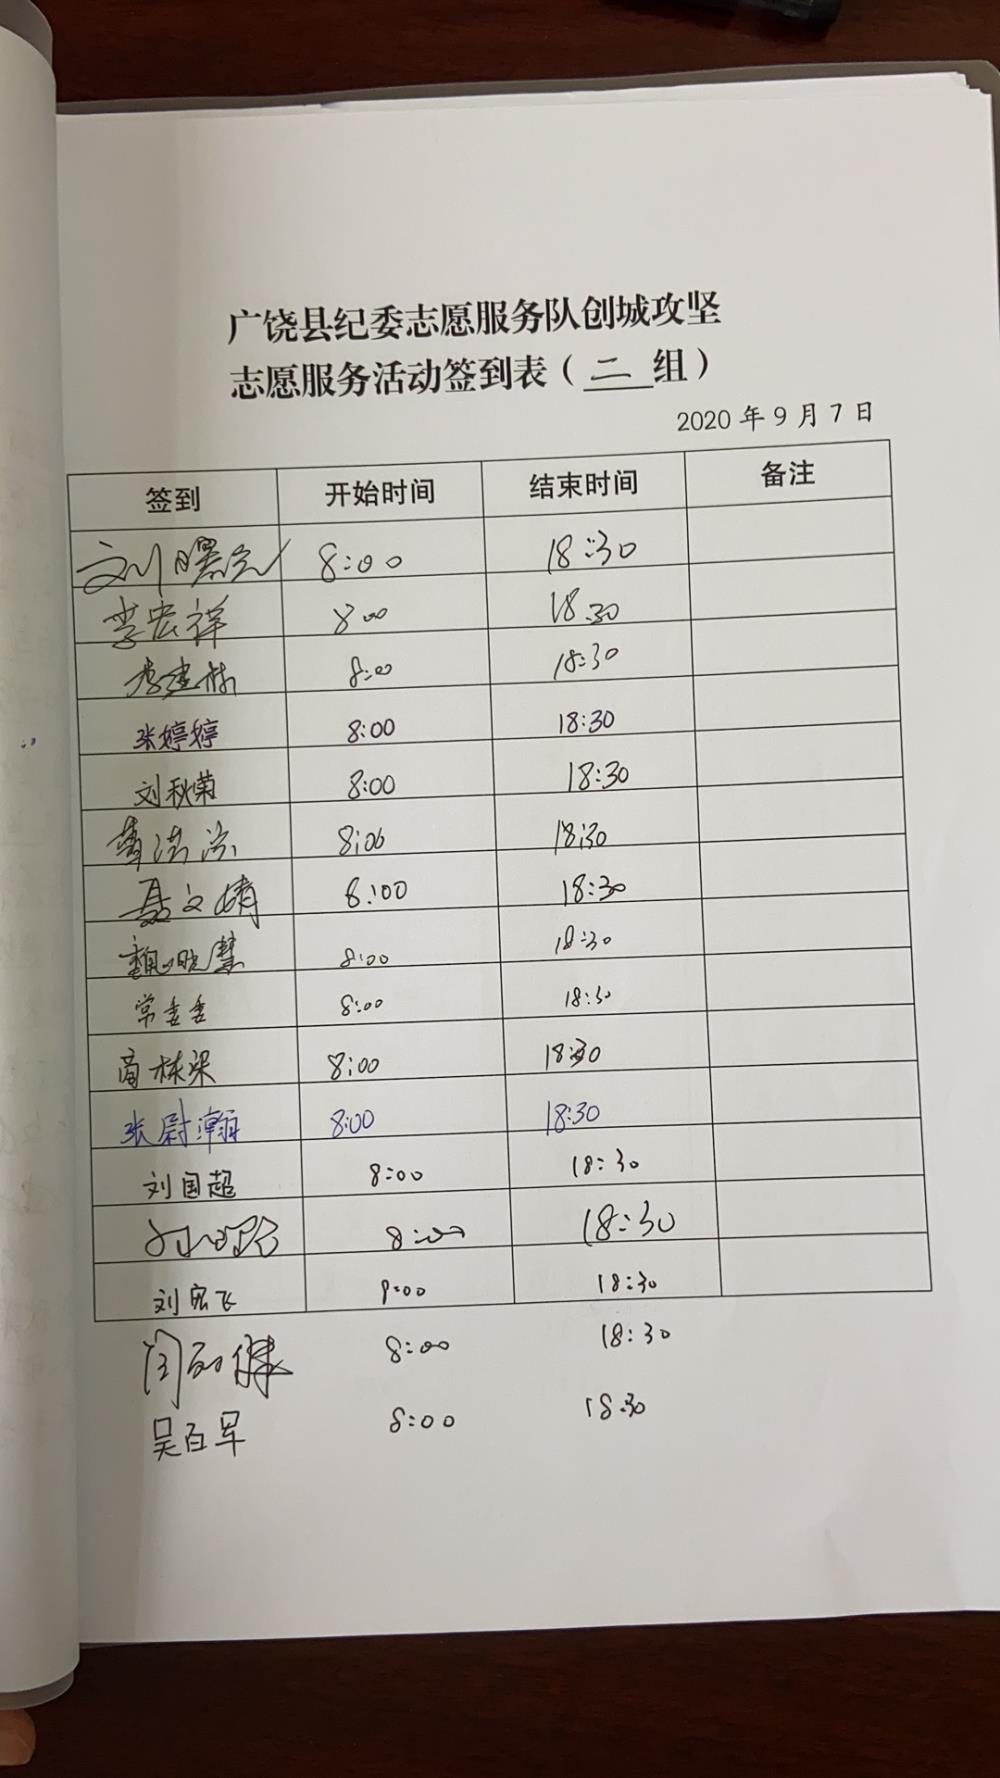 广饶县纪委志愿服务队创城攻坚
志愿服务活动签到表（二组）
2020年9月7日
签到 开始时间 结束时间 备注
刘曙光 8:00 18:30
李宏祥 8:00 18:30
李建栋 8:00 18:30
张婷婷 8:00 18:30
刘秋荣 8:00 18:30
8:00 18:30
聂文婧 8:00 18:30
魏晓慧 8:00 18:30
常委委 8:00 18:30
商栋梁 8:00 18:30
张尉瀚 8:00 18:30
刘国超 8:00 18:30
8:00 18:30
刘宏飞 8:00 18:30
8:00 18:30
吴百军 8:00 18:30